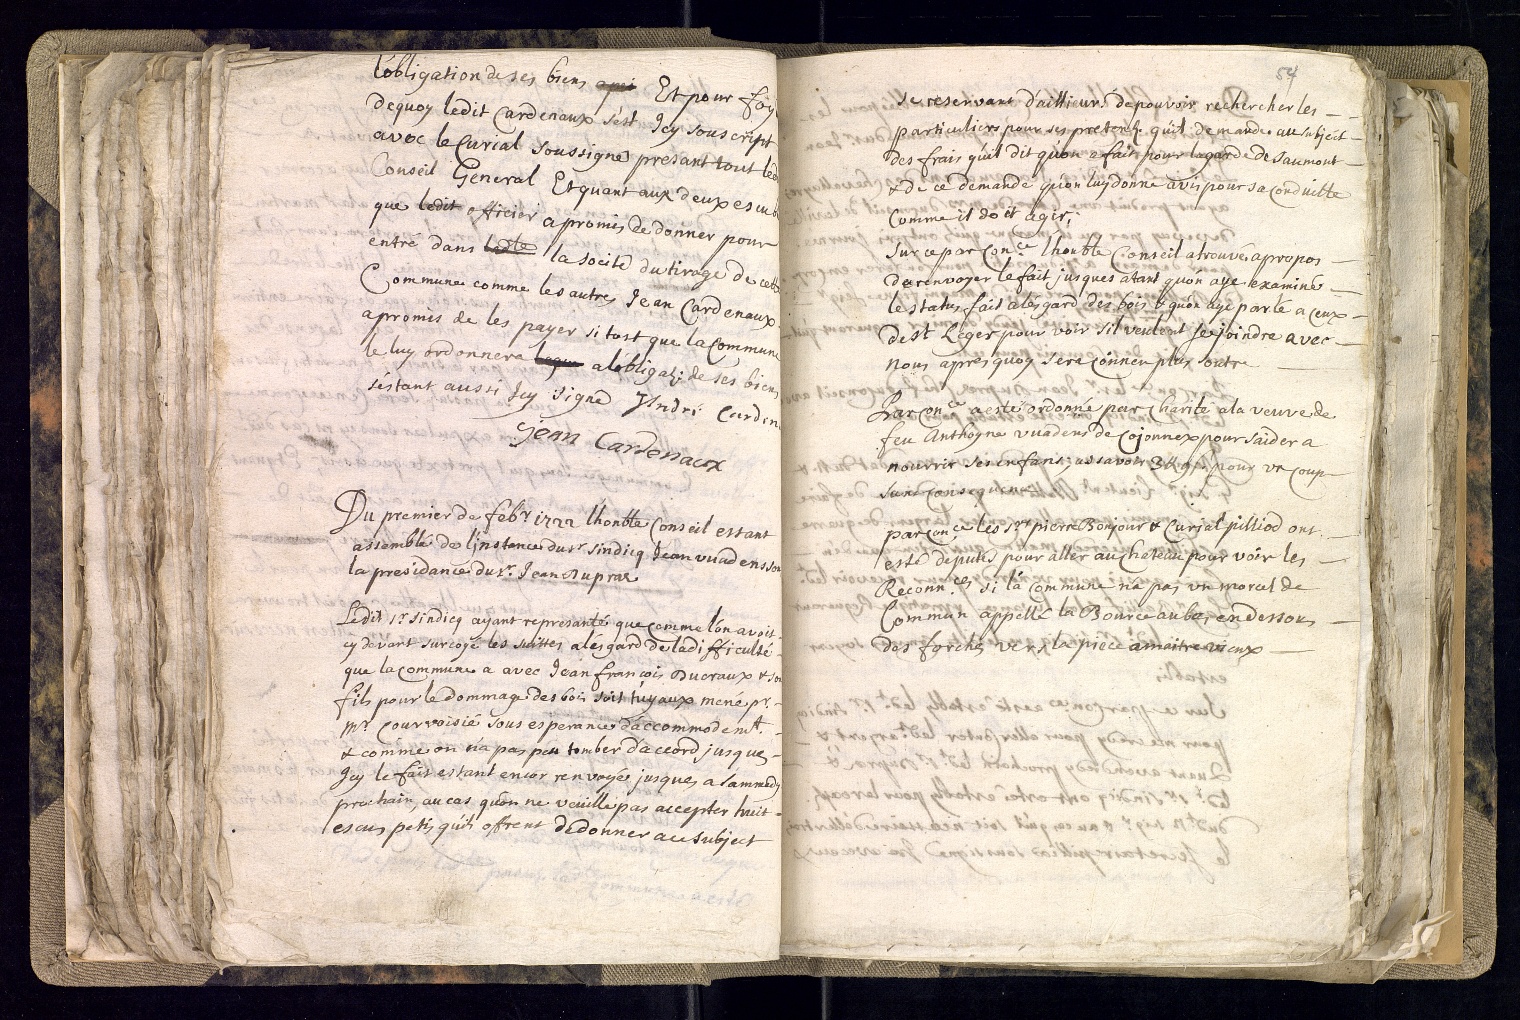 l'obligation de ses biens Et pour foy
dequoy ledit Cardenaux s'est Icy souscript
avec le Curial soussigné présant tout ledt
Conseil General Et quant aux deux escus bl
que ledit officier a promis de donner pour
entré dans la socité du tirage de cette
Commune comme les autres Jean Cardenaux
a promis de les payer si tost que la Commune
le luy ordonnera a l'obliga: de ses biens
s'estant aussi Icy signé Cardenaux
Jean Cardenaux
Du premier de febr 1722 l'honble Conseil estant
assemblé de l'instance du sr sindicq Jean vuadens sou
la presidance du sr. Jean Dupraz
Ledit sr sindicq ayant represanté que comme l'on avoit
cy devant surcoyé les suittes a l'ésgard de la difficulté
que la Commune a avec Jean françois Ducraux & son
fils pour le dommage des bois soit tuyaux mené pr.
Mr Courvoisié sous esperance d'accommodemt.
& comme on n'a pas peu tomber d'accord jusque
Icy le fait estant encor renvoyé jusques a sammedy
prochain, au cas qu'on ne veuille pas accepter huit
escus petis qu'ils offrent de donner a ce subject
54
se reservant d'aillieurs de pouvoir rechercher les
particuliers pour ses pretent: qu'il demande au subject
des frais qu'il dit qu'on a fait pour la garde de saumont
& de ce demande qu'on luy donne avis pour sa conduitte
Comme il doit agir;
sur ce par Conce l'honble Conseil a trouvé a propos
de renvoyer le fait jusques a tant qu'on aye examiné
le status fait a l'ésgard des bois & qu'on aye parlé a ceux
de st Leger pour voir s'il veulent se joindre avec
nous apres quoy sera conneu plus outre
Par Conce a esté ordonné par charité a la veuve de
feu Anthoyne vuadens de Cojonnex pour s'aider a
nourrir ses enfans, assavoir pour ve coup
sans Consequence
par Conce les srs pierre Bonjour & Curial pilliod ont
esté deputés pour aller au chateau pour voir les
Reconnces si la Commune n'a pas un morcel de
Commun appellé la Bource au bas, en dessous
des forches vers la piece a maitre vieux